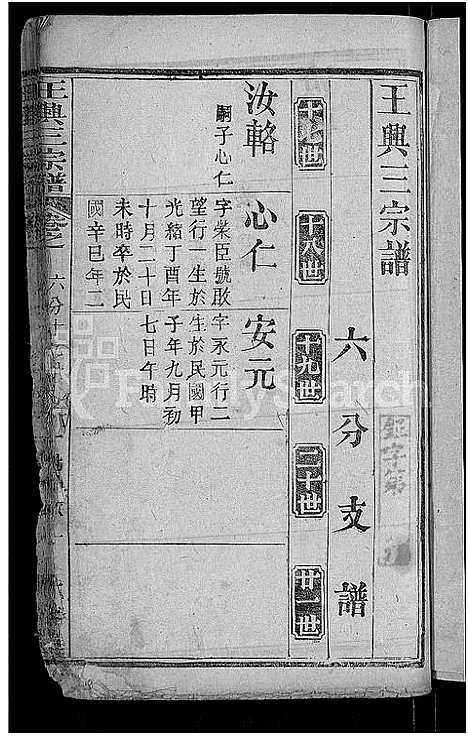 王興三宗譜
六分支譜
十七世
十八世
十九世
二十世
廿一世
汝輅
嗣子心仁
心仁
字榮臣號敢
望行一生於
光緒丁酉年
十月二十日
未時卒於民
國辛巳年二
安元
字永元行二
生於民國甲
子年九月初
七日午時
王興三宗譜
卷之
六分十七
FamilySearch